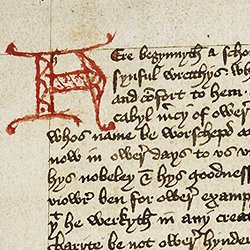 Here begynnyth a schor
synful wrecchys wh
and cōfort to hem
cabyl mcy of ower
whos name be worschepd
now in ower days to us v
hys nobeley & hys goodness
viowr ben for ower examp
þt he werkyth in any creat
charyte be not ower hynd